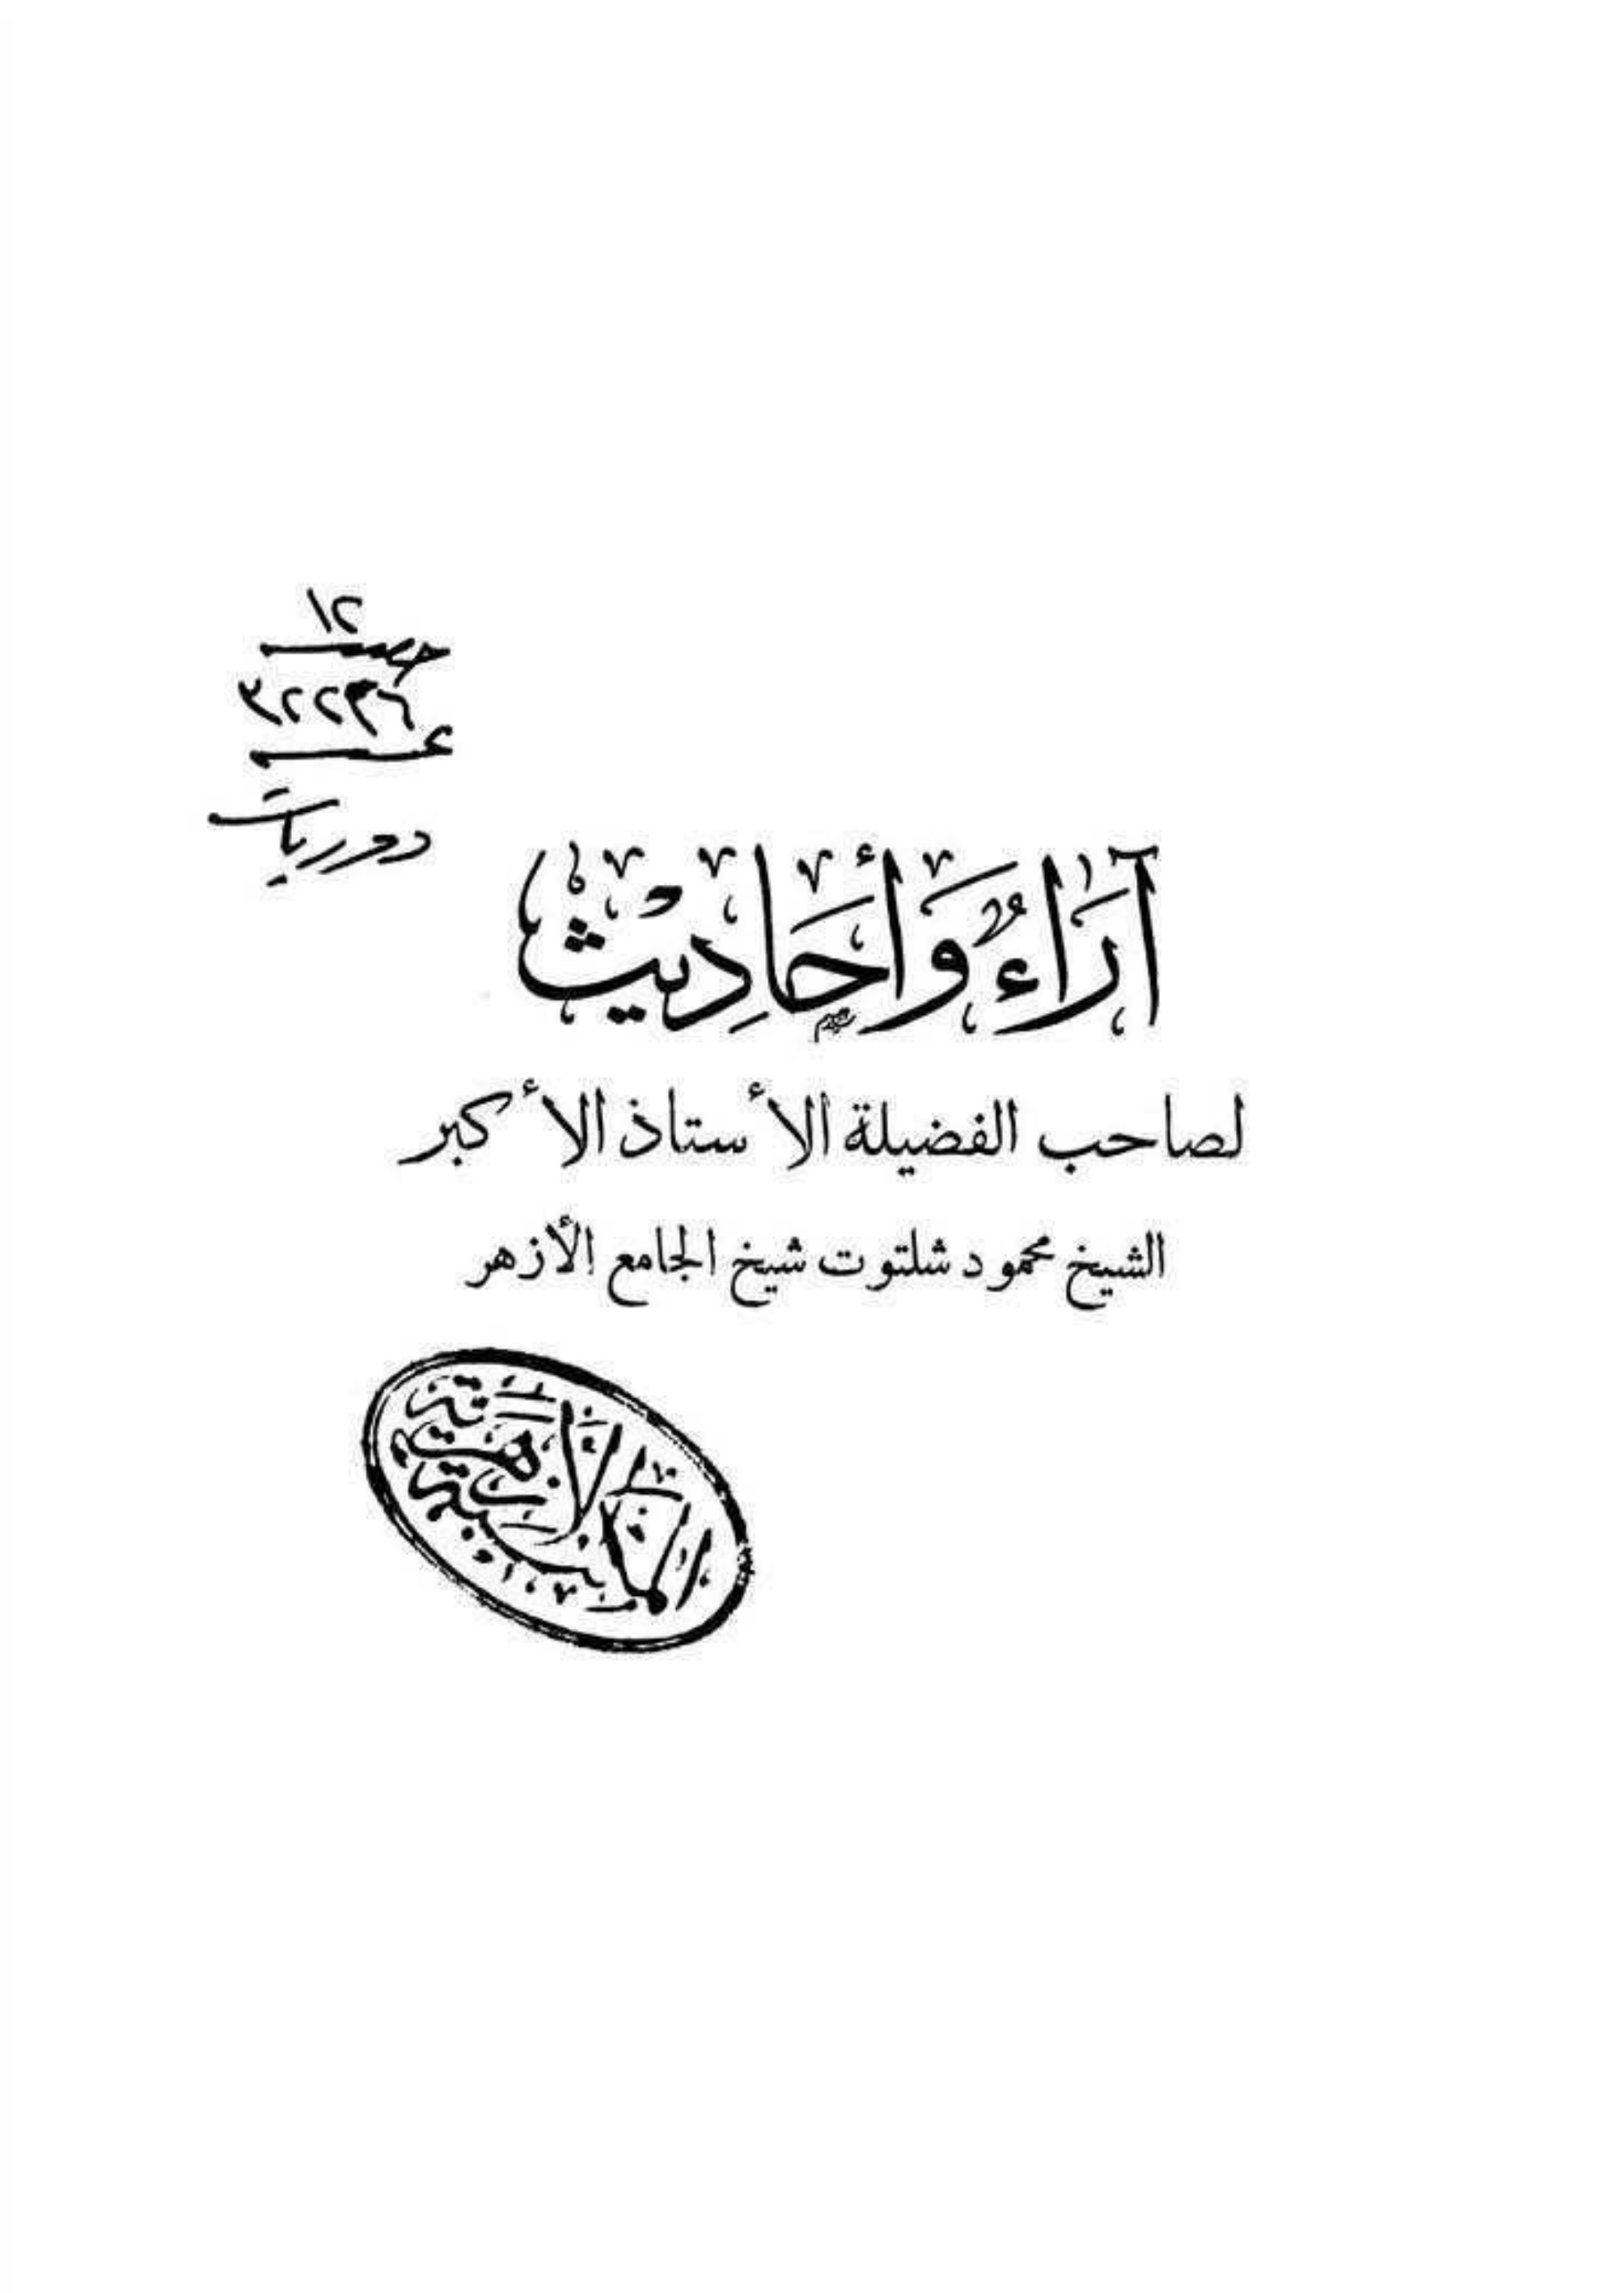 ١٢
خصـ
٣٢٢٣٦
عـ
دوريات
آرَاءٌ وَأَحَادِيْث
لصاحب الفضيلة الأستاذ الأكبر
الشيخ محمود شلتوت شيخ الجامع الأزهر
المكتبة الأزهرية